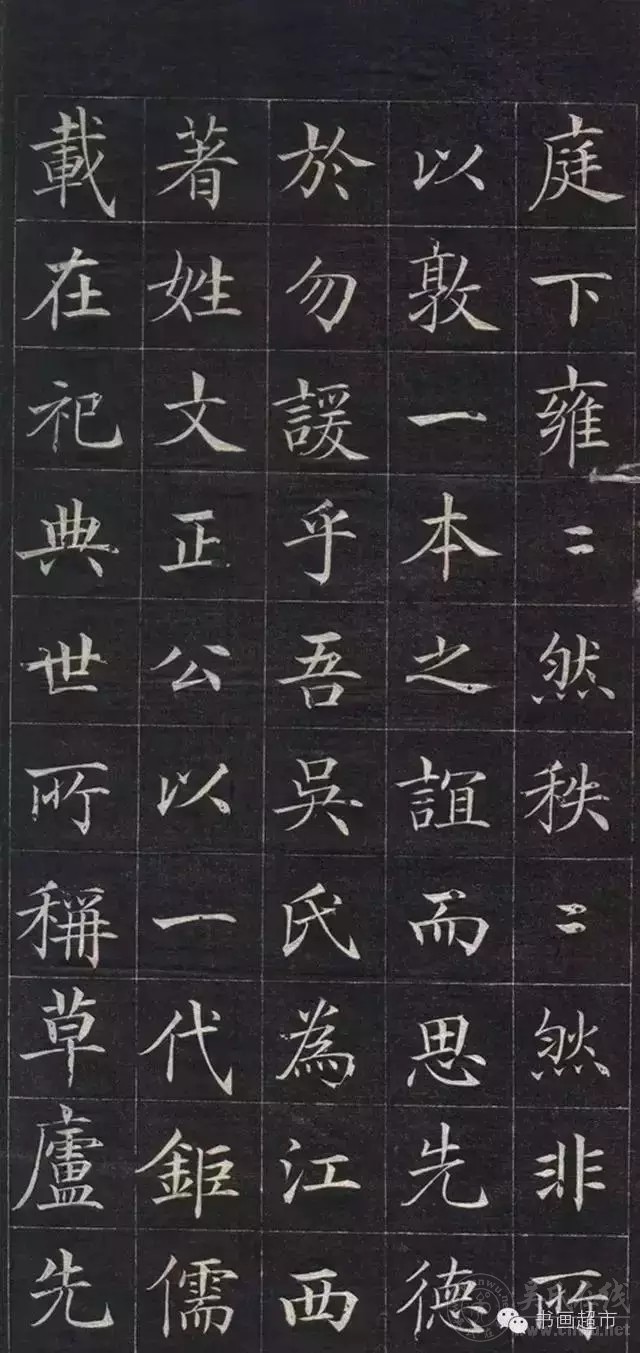 庭下雍〻然秩〻然非所
以敦一本之誼而思先德
於勿諼乎吾吳氏為江西
著姓文正公以一代鉅儒
載在祀典世所稱草廬先
书画超市